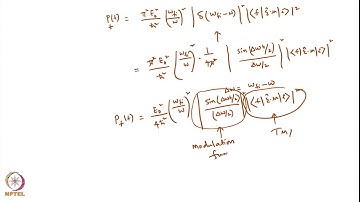 P_f(t) = \frac{\pi^2 E_0^2}{\hbar^2} \left(\frac{\omega_{fi}}{\omega}\right)^2 |\delta(\omega_{fi}-\omega)|^2 |<f|\hat{\epsilon}.\mu|i>|^2
= \frac{\pi^2 E_0^2}{\hbar^2} \left(\frac{\omega_{fi}}{\omega}\right)^2 . \frac{1}{4\pi^2} \left|\frac{\sin(\Delta\omega t/2)}{\Delta\omega/2}\right|^2 |<f|\hat{\epsilon}.\mu|i>|^2
\Delta\omega = \omega_{fi}-\omega
P_f(t) = \frac{E_0^2}{4\hbar^2} \left(\frac{\omega_{fi}}{\omega}\right)^2 \left|\frac{\sin(\Delta\omega t/2)}{(\Delta\omega/2)}\right|^2 |<f|\hat{\epsilon}.\mu|i>|^2
modulation TMI
func
NPTEL